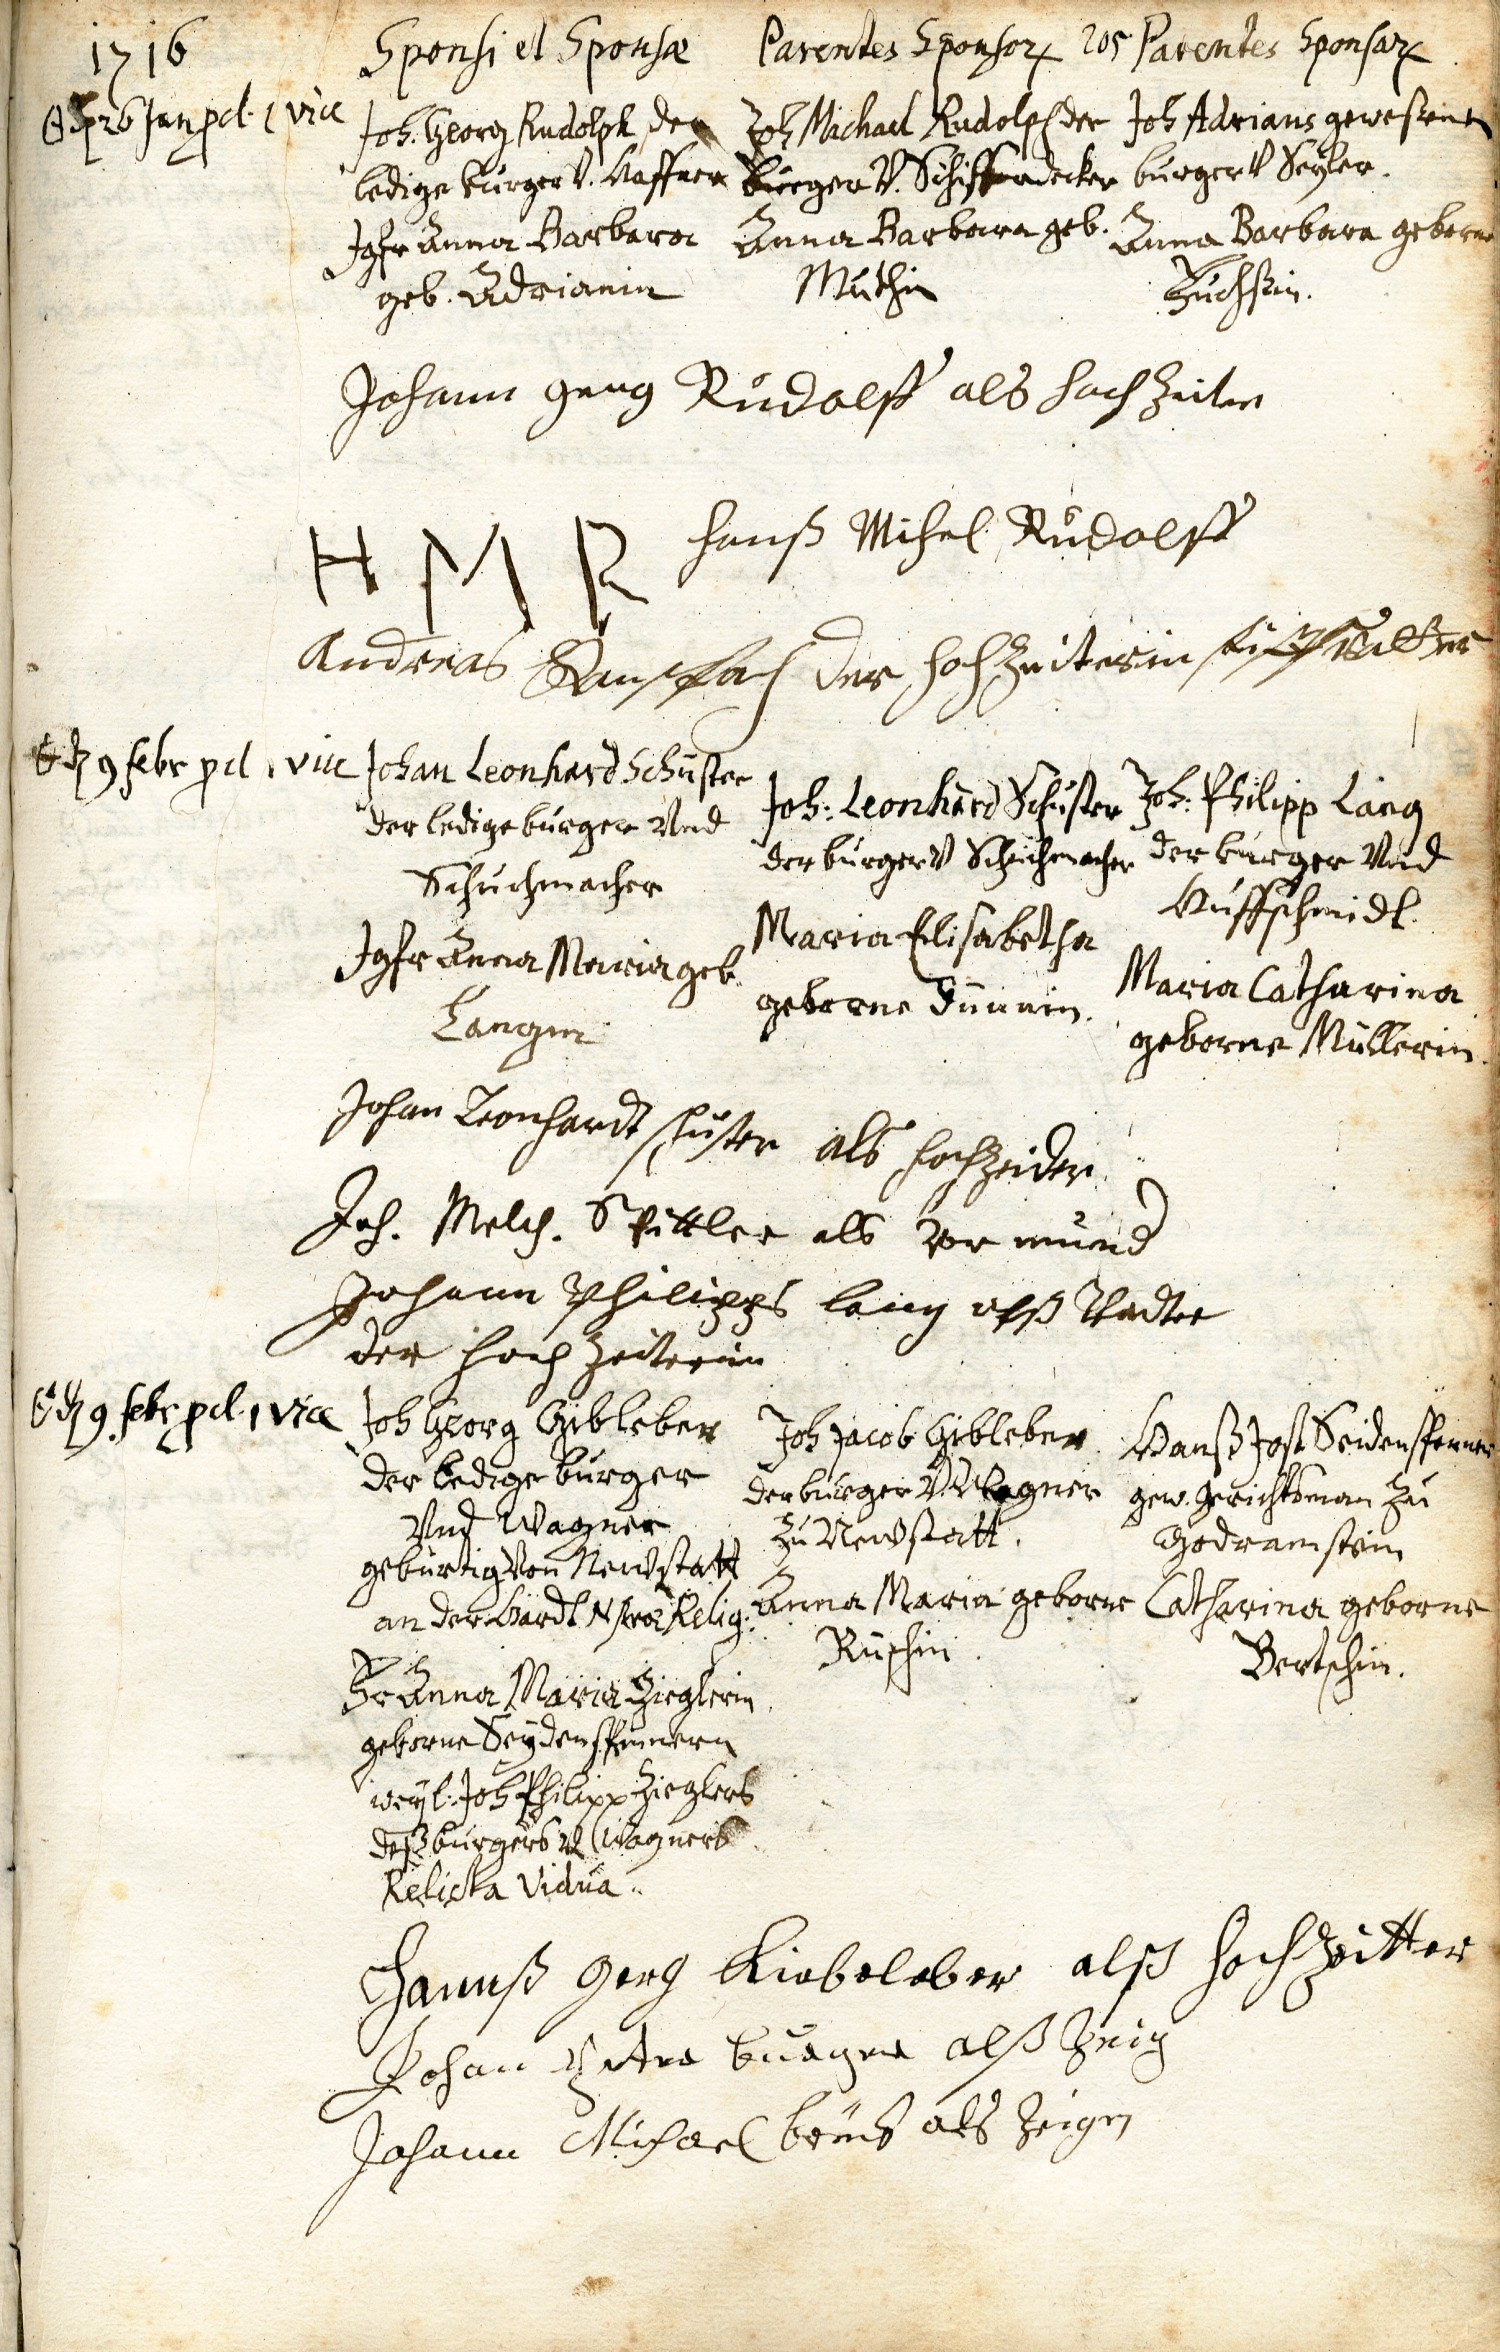 1716 Sponsi et Sponsæ Parentes Sponsor 205 Parentes Sponsar
26 Jan pcl. 1 vice
Joh. Georg Rudolph der
ledige burger V. Haffner
Jgfr Anna Barbara
geb. Adrianin
Joh Michael Rudolph der
burger V. Schiffendecker
Anna Barbara geb.
Muthin
Joh Adrians gewesener
burger V Seyler.
Anna Barbara geborne
Fuchsin.
Johann Georg Rudolff als hoch Zeiter
H M R hanß Mihel Rudolff
Andreas der hoch Zeiterin
9 febr pcl 1 vice
Johan Leonhard Schuster
der ledige burger Und
Schuchmacher
Jgfr Anna Maria geb.
Langin
Joh: Leonhard Schuster
der burger V Schuchmacher
Maria Elisabetha
geborne
Joh: Philipp Lang
der burger Und
Huffschmidt.
Maria Catharina
geborne Müllerin.
Johan Leonhardt schuster als hochzeider
Joh. Melch. Spittler als Vor mund
Johann Philipps lang alß Vadter
der hoch Zeiterin
9. febr pcl. 1 vice
Joh Georg Gibleber
der ledige burger
Und Wagner
geburtig von Newstatt
an der Hardt Relig.
Fr Anna Maria Zieglerin
geborne Seydenspinnern
weyl. Joh Philipp Zieglers
deß burgers V Wagners
Relicta Vidua.
Joh Jacob Gibleber
der burger V. Wagner
zu Newstatt.
Anna Maria geborne
Hanß Jost Seidenspinner
gew. Gerichtsman zu
Godramstein
Catharina geborne
Bertschin.
Hannß Gerg Kiebeleber alß hoch Zeitter
Johan als Zeig
Johann Michael als Zeigen